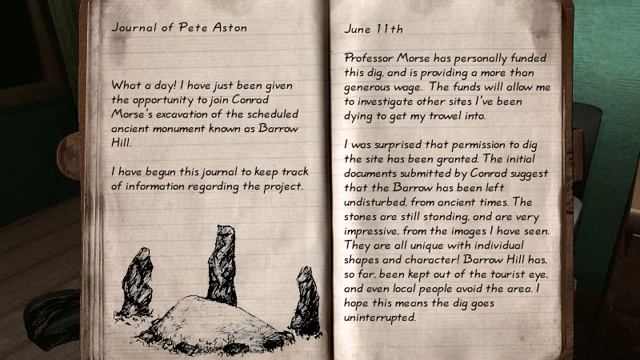 Journal of Pete Aston
What a day! I have just been given
the opportunity to join Conrad
Morse's excavation of the scheduled
ancient monument known as Barrow
Hill.
I have begun this journal to keep track
of information regarding the project.
June 11th
Professor Morse has personally funded
this dig, and is providing a more than
generous wage. The funds will allow me
to investigate other sites I've been
dying to get my trowel into.
I was surprised that permission to dig
the site has been granted. The initial
documents submitted by Conrad suggest
that the Barrow has been left
undisturbed, from ancient times. The
stones are still standing, and are very
impressive, from the images I have seen.
They are all unique with individual
shapes and character! Barrow Hill has,
so far, been kept out of the tourist eye,
and even local people avoid the area. I
hope this means the dig goes
uninterrupted.